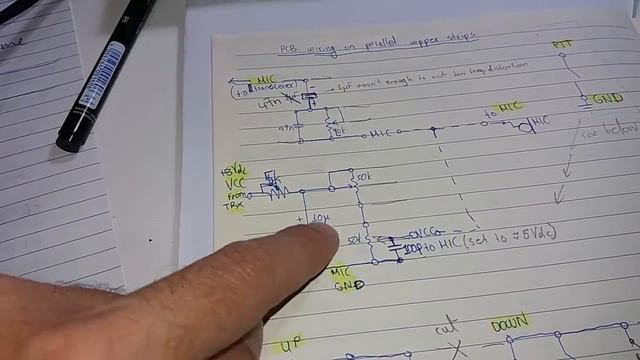 PCB wiring on parallel copper strips
MIC
(to transceiver)
47n
1µF wasn't enough to cut low freq distortion
47n
10k
MIC
to MIC
MIC
PTT
GND
see below
+8Vdc
VCC
from
TRX
50k
+ 10µ
VCC
100p to MIC (set to ≈5Vdc)
MIC
GND
UP
cut
DOWN